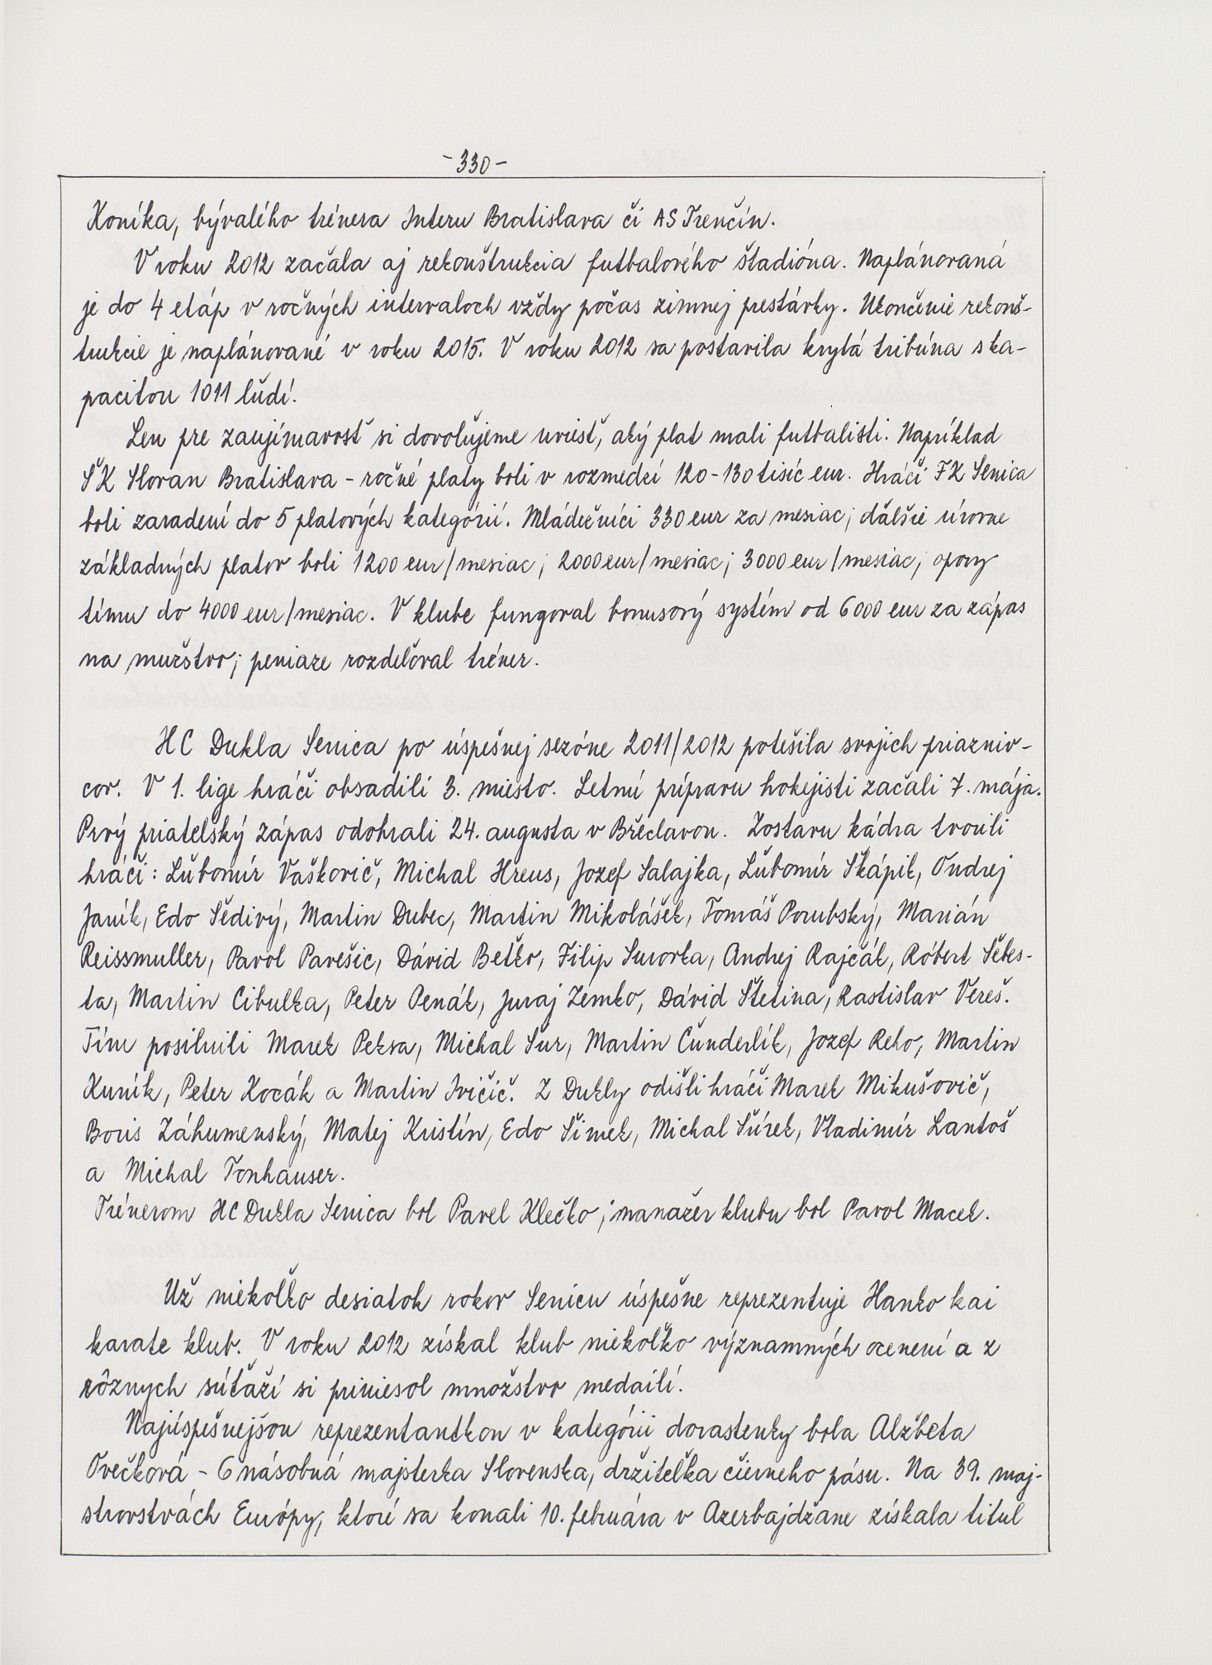 -330-
Koníka, bývalého trénera Interu Bratislava či AS Trenčín.
V roku 2012 začala aj rekonštrukcia futbalového štadióna. Naplánovaná
je do 4 etáp v ročných intervaloch vždy počas zimnej prestávky. Ukončenie rekonš-
trukcie je naplánované v roku 2015. V roku 2012 sa postavila krytá tribúna s ka-
pacitou 1011 ľudí.
Len pre zaujímavosť si dovoľujeme uviesť, aký plat mali futbalisti. Napríklad
ŠK Slovan Bratislava - ročné platy boli v rozmedzí 120-130 tisíc eur. Hráči FK Senica
boli zaradení do 5 platových kategórií. Mládežníci 330 eur za mesiac; ďalšie úrovne
základných platov boli 1200 eur/mesiac; 2000 eur/mesiac; 3000 eur/mesiac; opory
tímu do 4000 eur/mesiac. V klube fungoval bonusový systém od 6000 eur za zápas
na mužstvo; peniaze rozdeľoval tréner.
HC Dukla Senica po úspešnej sezóne 2011/2012 potešila svojich priazniv-
cov. V 1. lige hráči obsadili 3. miesto. Letnú prípravu hokejisti začali 7. mája.
Prvý priateľský zápas odohrali 24. augusta v Břeclavou. Zostavu kádra tvorili
hráči: Ľubomír Vaškovič, Michal Hreus, Jozef Salajka, Ľubomír Skápik, Ondrej
Janík, Edo Šedivý, Martin Dubec, Martin Mikolášek, Tomáš Porubský, Marián
Reissmuller, Pavol Pavešic, Dávid Beťko, Filip Surovka, Andrej Rajčák, Róbert Šeks-
ta, Martin Cibulka, Peter Penák, Juraj Zemko, Dávid Štetina, Rastislav Vereš.
Tím posilnili Marek Peksa, Michal Sur, Martin Čunderlík, Jozef Reho, Martin
Kuník, Peter Kocák a Martin Ivičič. Z Dukly odišli hráči Marek Mikušovič,
Boris Záhumenský, Matej Kristín, Edo Šimek, Michal Šúrek, Vladimír Lantoš
a Michal Tonhauser.
Trénerom HC Dukla Senica bol Pavel Klečko; manažér klubu bol Pavol Macek.
Už niekoľko desiatok rokov Senicu úspešne reprezentuje Hanko kai
karate klub. V roku 2012 získal klub niekoľko významných ocenení a z
rôznych súťaží si priniesol množstvo medailí.
Najúspešnejšou reprezentantkou v kategórii dorastenky bola Alžbeta
Ovečková - 6 násobná majsterka Slovenska, držiteľka čierneho pásu. Na 39. maj-
strovstvách Európy, ktoré sa konali 10. februára v Azerbajdžane získala titul